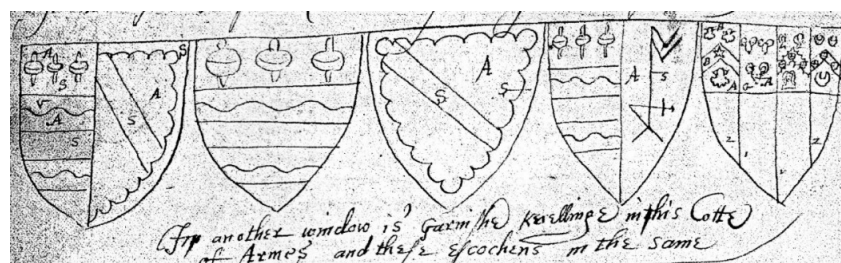 A
S
S
V
A
S
A
S
A
S
S
A
S
A
2
1
1
2
In another window is Garnishe knellinge in his Cotte
of Armes and these escochens in the same